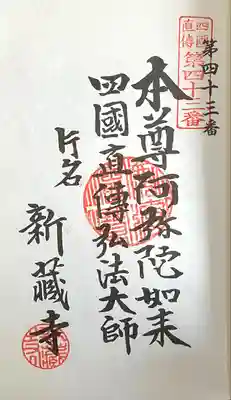 第四十三番
四國
直傳
第四十二番
本尊阿弥陀如来
四國直傳弘法大師
片名
新蔵寺